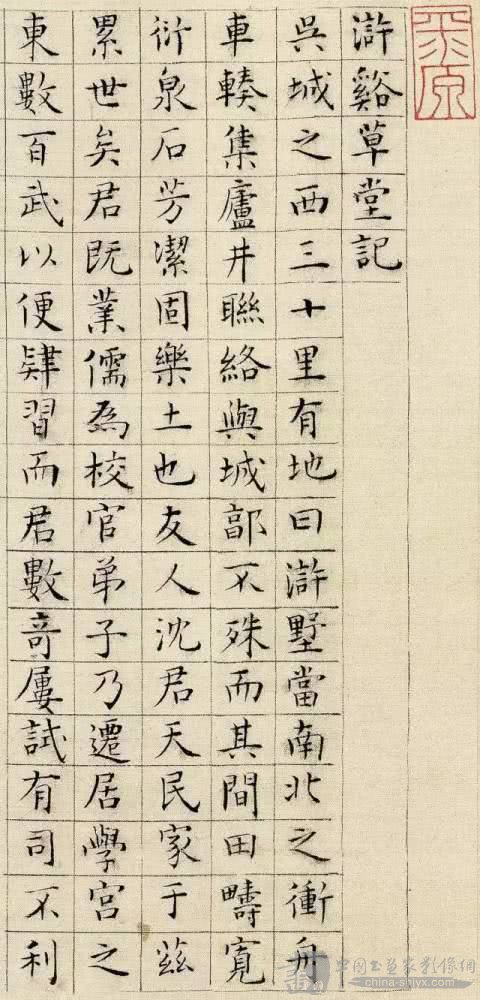 滸谿草堂記
吳城之西三十里有地曰滸墅當南北之衝舟
車輳集廬井聯絡與城郭不殊而其間田疇寬
衍泉石芳潔固樂土也友人沈君天民家于茲
累世矣君既業儒為校官弟子乃遷居學宮之
東數百武以便肄習而君數奇屢試有司不利
中国书画家影像网
china-shjyx.com